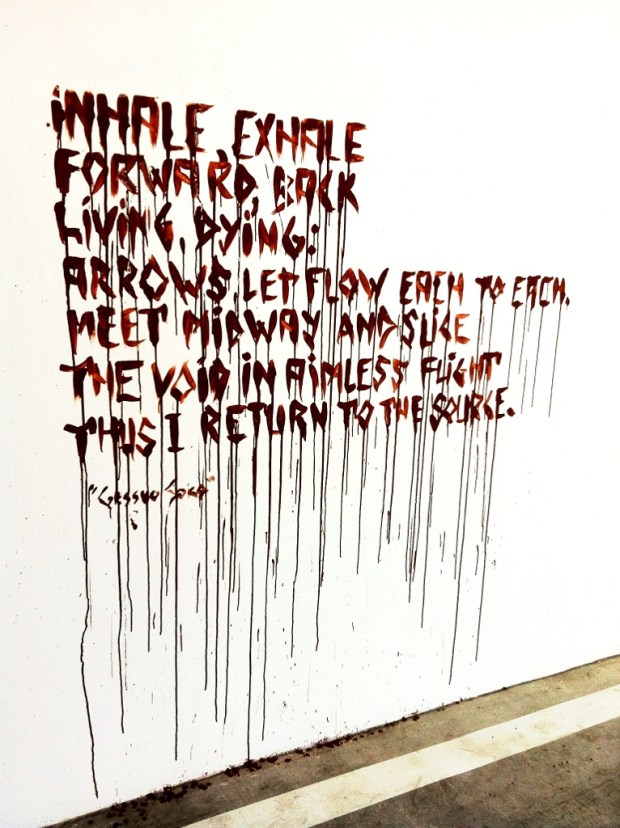 INHALE, EXHALE
FORWARD, BACK
LIVING, DYING:
ARROWS, LET FLOW EACH TO EACH.
MEET MIDWAY AND SLICE
THE VOID IN AIMLESS FLIGHT
THUS I RETURN TO THE SOURCE.
"GESSHU SOKO"